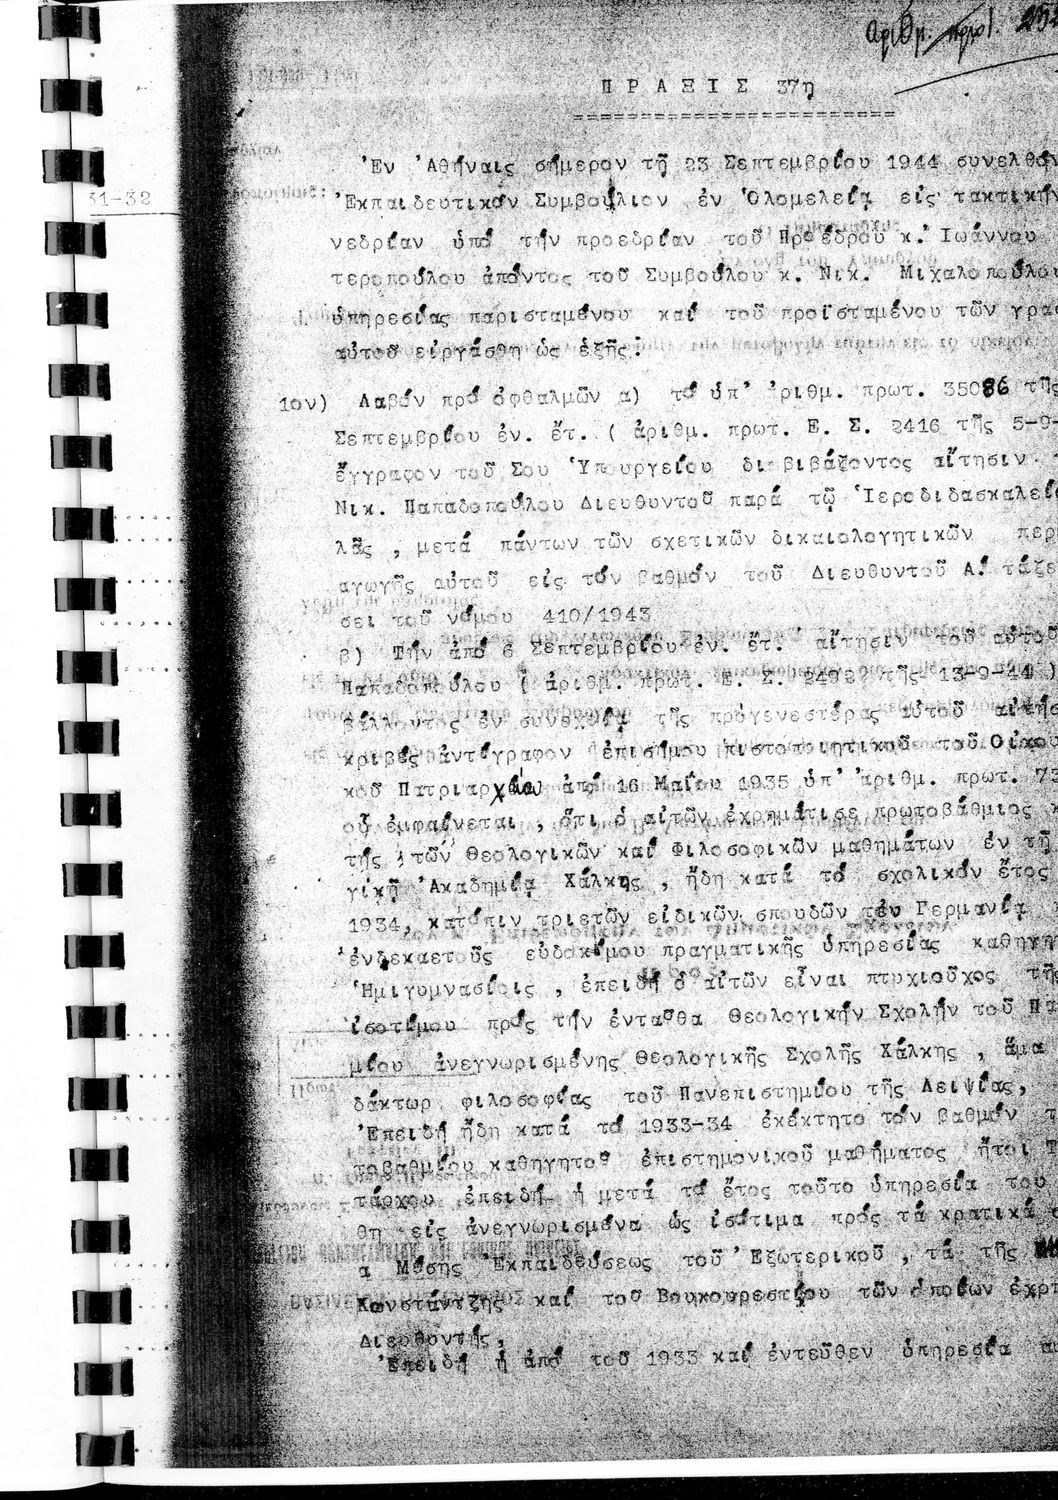 Αριθμ. πρωτ.
Π Ρ Α Ξ Ι Σ 37η
Ἐν Ἀθήναις σήμερον τῇ 23 Σεπτεμβρίου 1944 συνελθόν
31-32
Ἐκπαιδευτικόν Συμβούλιον ἐν Ὁλομελείᾳ εἰς τακτικήν
νεδρίαν ὑπό τήν προεδρίαν τοῦ Προέδρου κ. Ἰωάννου
τεροπούλου ἀπόντος τοῦ Συμβούλου κ. Νικ. Μιχαλοπούλου
ὑπηρεσίας παρισταμένου καί τοῦ προϊσταμένου τῶν γρα
αὐτοῦ εἰργάσθη ὡς ἑξῆς:
1ον) Λαβόν πρό ὀφθαλμῶν α) τό ὑπ' ἀριθμ. πρωτ. 35086 τῆς
Σεπτεμβρίου ἐν. ἔτ. ( ἀριθμ. πρωτ. Ε. Σ. 2416 τῆς 5-9-
ἔγγραφον τοῦ Σου Ὑπουργείου διαβιβάζοντος αἴτησιν
Νικ. Παπαδοπούλου Διευθυντοῦ παρά τῷ Ἱεροδιδασκαλεί
λᾶς , μετά πάντων τῶν σχετικῶν δικαιολογητικῶν περ
αγωγῆς αὐτοῦ εἰς τόν βαθμόν τοῦ Διευθυντοῦ Α΄ τάξε
σει τοῦ νόμου 410/1943
β) Τήν ἀπό 6 Σεπτεμβρίου ἐν. ἔτ. αἴτησιν τοῦ αὐτοῦ
Παπαδοπούλου ( ἀριθμ. πρωτ. Ε. Σ. τῆς 13-9-44 )
βάλλοντος ἐν συνεχείᾳ τῆς προγενεστέρας αὐτοῦ αἰτήσ
κριβές ἀντίγραφον ἐπισήμου πιστοποιητικοῦ τοῦ Οἰκου
κοῦ Πατριαρχείου ἀπό 16 Μαΐου 1935 ὑπ' ἀριθμ. πρωτ. 73
οὗ ἐμφαίνεται , ὅτι ὁ αἰτῶν ἐχρημάτισε πρωτοβάθμιος κ
τής τῶν Θεολογικῶν καί Φιλοσοφικῶν μαθημάτων ἐν τῇ
γικῇ Ἀκαδημίᾳ Χάλκης , ἤδη κατά τό σχολικόν ἔτος
1934, κατόπιν τριετῶν εἰδικῶν σπουδῶν ἐν Γερμανίᾳ
ἑνδεκαετοῦς εὐδοκίμου πραγματικῆς ὑπηρεσίας καθηγη
Ἡμιγυμνασίοις , ἐπειδή ὁ αἰτῶν εἶναι πτυχιοῦχος τῆς
ἰσοτίμου πρός τήν ἐνταῦθα Θεολογικήν Σχολήν τοῦ Πα
μίου ἀνεγνωρισμένης Θεολογικῆς Σχολῆς Χάλκης , ἅμα
δόκτωρ φιλοσοφίας τοῦ Πανεπιστημίου τῆς Λειψίας,
Ἐπειδή ἤδη κατά τό 1933-34 ἐκέκτητο τόν βαθμόν τ
τοβαθμίου καθηγητοῦ ἐπιστημονικοῦ μαθήματος ἤτοι
τάρχου ἐπειδή ἡ μετά τό ἔτος τοῦτο ὑπηρεσία του
θη εἰς ἀνεγνωρισμένα ὡς ἰσότιμα πρός τά κρατικά
α Μέσης Ἐκπαιδεύσεως τοῦ Ἐξωτερικοῦ , τά τῆς
Κωνστάντζης καί τοῦ Βουκουρεστίου τῶν ὁποίων ἐχρη
Διευθυντής,
Ἐπειδή ἡ ἀπό τοῦ 1933 καί ἐντεῦθεν ὑπηρεσία αυ